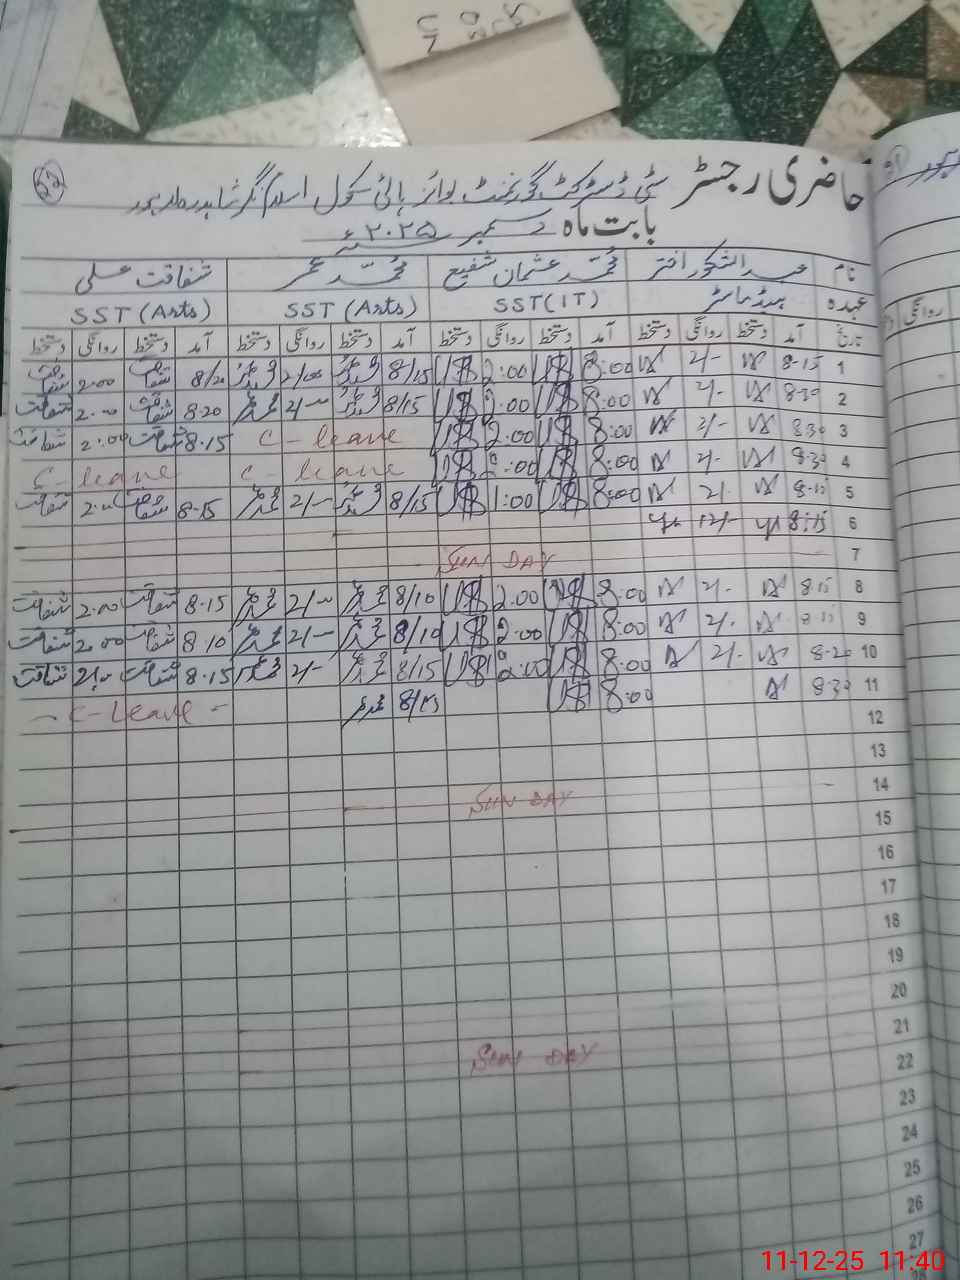 52
حاضری رجسٹر سٹی ڈسٹرکٹ گورنمنٹ بوائز ہائی سکول اسلام نگر شاہدرہ لاہور
بابت ماہ دسمبر ۲۰۲۵ء
نام عبدالشکور اختر محمد عثمان شفیع محمد عمر شفاقت علی
عہدہ ہیڈ ماسٹر SST (IT) SST (Arts) SST (Arts)
تاریخ آمد دستخط روانگی دستخط آمد دستخط روانگی دستخط آمد دستخط روانگی دستخط آمد دستخط روانگی دستخط
1 8-15 2/- 8:00 2:00 8/15 2/00 8/20 شفاقت 2:00 شفاقت
2 8-30 2/- 8:00 2:00 8/15 2/- 8-20 شفاقت 2:00 شفاقت
3 830 2/- 8:00 2:00 C-leave 8-15 شفاقت 2:00 شفاقت
4 8-30 2/- 8:00 2:00 C-leave C-leave
5 8-15 2/- 8:00 1:00 8/15 2/- 8-15 شفاقت 2:00 شفاقت
6 8:15 12/-
7 SUNDAY
8 8-15 2/- 8:00 2:00 8/10 2/- 8-15 شفاقت 2:00 شفاقت
9 8-15 2/- 8:00 2:00 8/10 2/- 8-10 شفاقت 2:00 شفاقت
10 8-20 2/- 8:00 2:00 8/15 2/- 8-15 شفاقت 2/00 شفاقت
11 8-30 8:00 8/15 C-Leave
12
13
14 SUNDAY
15
16
17
18
19
20
21 SUNDAY
22
23
24
25
26
27
روانگی
11-12-25 11:40